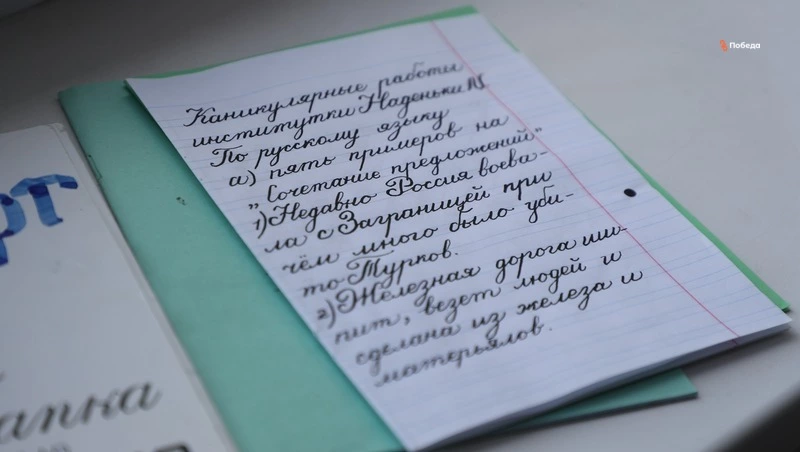 Победа
Каникулярные работы
институтки Наденьки N.
По русскому языку
а) пять примеров на
„Сочетание предложений"
1) Недавно Россия воева-
ла с Заграницей при
чём много было уби-
то Турков.
2) Железная дорога ши-
пит, везет людей и
сделана из железа и
матерьялов.
рт
апка